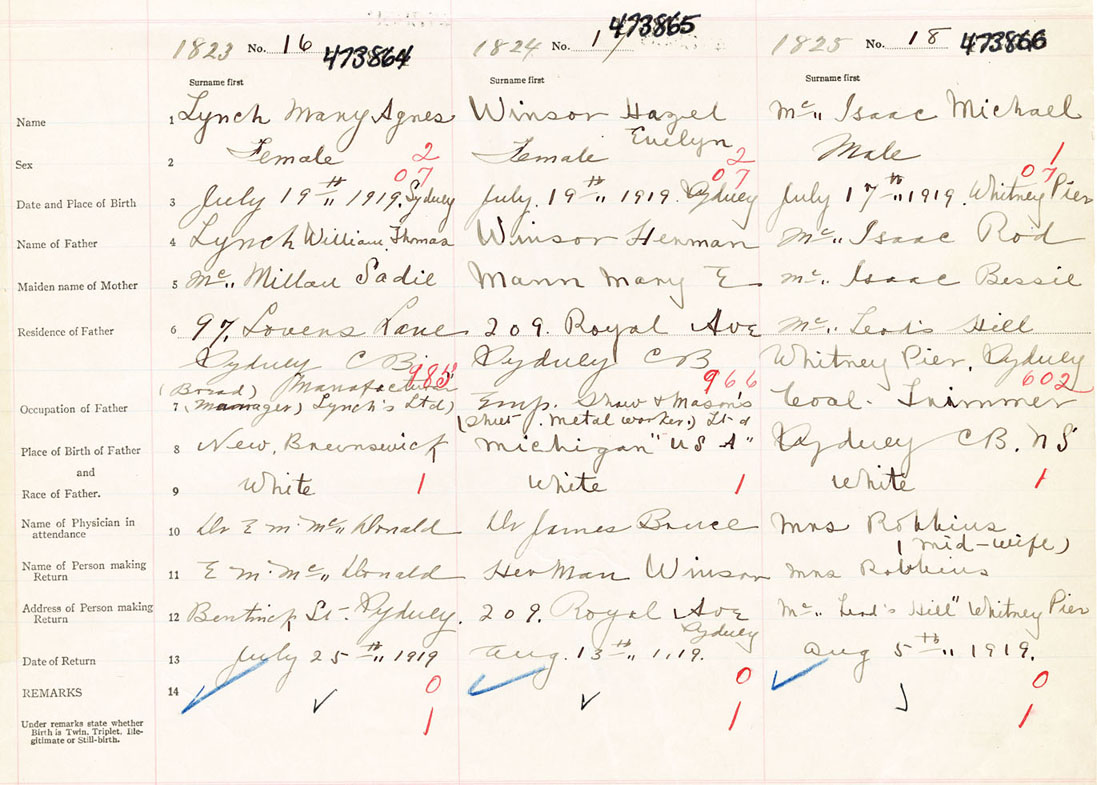 1823 No. 16 473864 1824 No. 17 473865 1825 No. 18 473866
Surname first Surname first Surname first
Name 1 Lynch Mary Agnes Winsor Hazel Mc,, Isaac Michael
Evelyn
Sex 2 Female 2 Female 2 Male 1
07 07 07
Date and Place of Birth 3 July 19th,, 1919. Sydney July. 19th,, 1919. Sydney July 17th,, 1919. Whitney Pier
Name of Father 4 Lynch William Thomas Winsor Herman Mc,, Isaac Rod
Maiden name of Mother 5 Mc,, Millan Sadie Mann Mary E Mc,, Isaac Bessie
Residence of Father 6 97, Lovens Lane 209. Royal Ave Mc,, Lead's Hill
Sydney C B Sydney C B Whitney Pier, Sydney
985 966 602
(Bread) Manufacturer
Occupation of Father 7 (Manager) Lynch's Ltd) Emp. Shaw & Mason's Coal. Trimmer
(Sheet. Metal worker,) Ltd
Place of Birth of Father 8 New, Brunswick Michigan "U S A" Sydney C B. N S
and
Race of Father. 9 White 1 White 1 White 1
Name of Physician in
attendance 10 Dr E M. Mc,, Donald Dr James Bruce Mrs Robbins
(mid-wife)
Name of Person making
Return 11 E M. Mc,, Donald Herman Winsor Mrs Robbins
Address of Person making
Return 12 Bentinck St - Sydney. 209. Royal Ave Mc,, Lead's Hill" Whitney Pier
Sydney
Date of Return 13 July 25th,, 1919 Aug. 13th,, 1,19. Aug 5th,, 1919.
REMARKS 14 0 0 0
Under remarks state whether
Birth is Twin, Triplet, Ille-
gitimate or Still-birth. 1 1 1